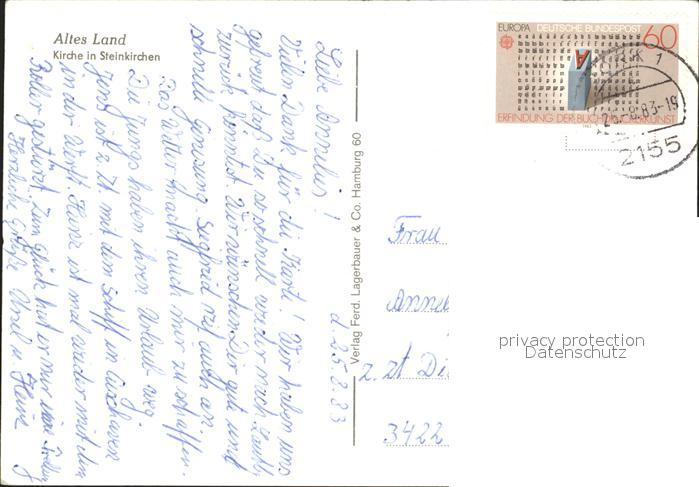 Altes Land
Kirche in Steinkirchen
Liebe Annelie!
Vielen Dank für die Karte! Wir haben uns
gefreut daß Du so schnell wieder nach
zurück konntest. Wir wünschen Dir gute und
schnelle Genesung. Siegfried rief auch an.
Das Wetter macht auch mir zu schaffen.
Die Jungs haben ihren Urlaub weg.
Jens ist z. Zt. mit dem Schiff in Cuxhaven
in der Werft. Heinz ist mal wieder mit dem
Roller gestürzt. Zum Glück hat er nur
Herzliche Grüße Ursel u. Heinz
d. 25.8.83
Verlag Ferd. Lagerbauer & Co. Hamburg 60
EUROPA DEUTSCHE BUNDESPOST 60
ERFINDUNG DER BUCHDRUCKERKUNST
1
.83-19
2155
Frau
Anne
z. Zt Di
3422
privacy protection
Datenschutz